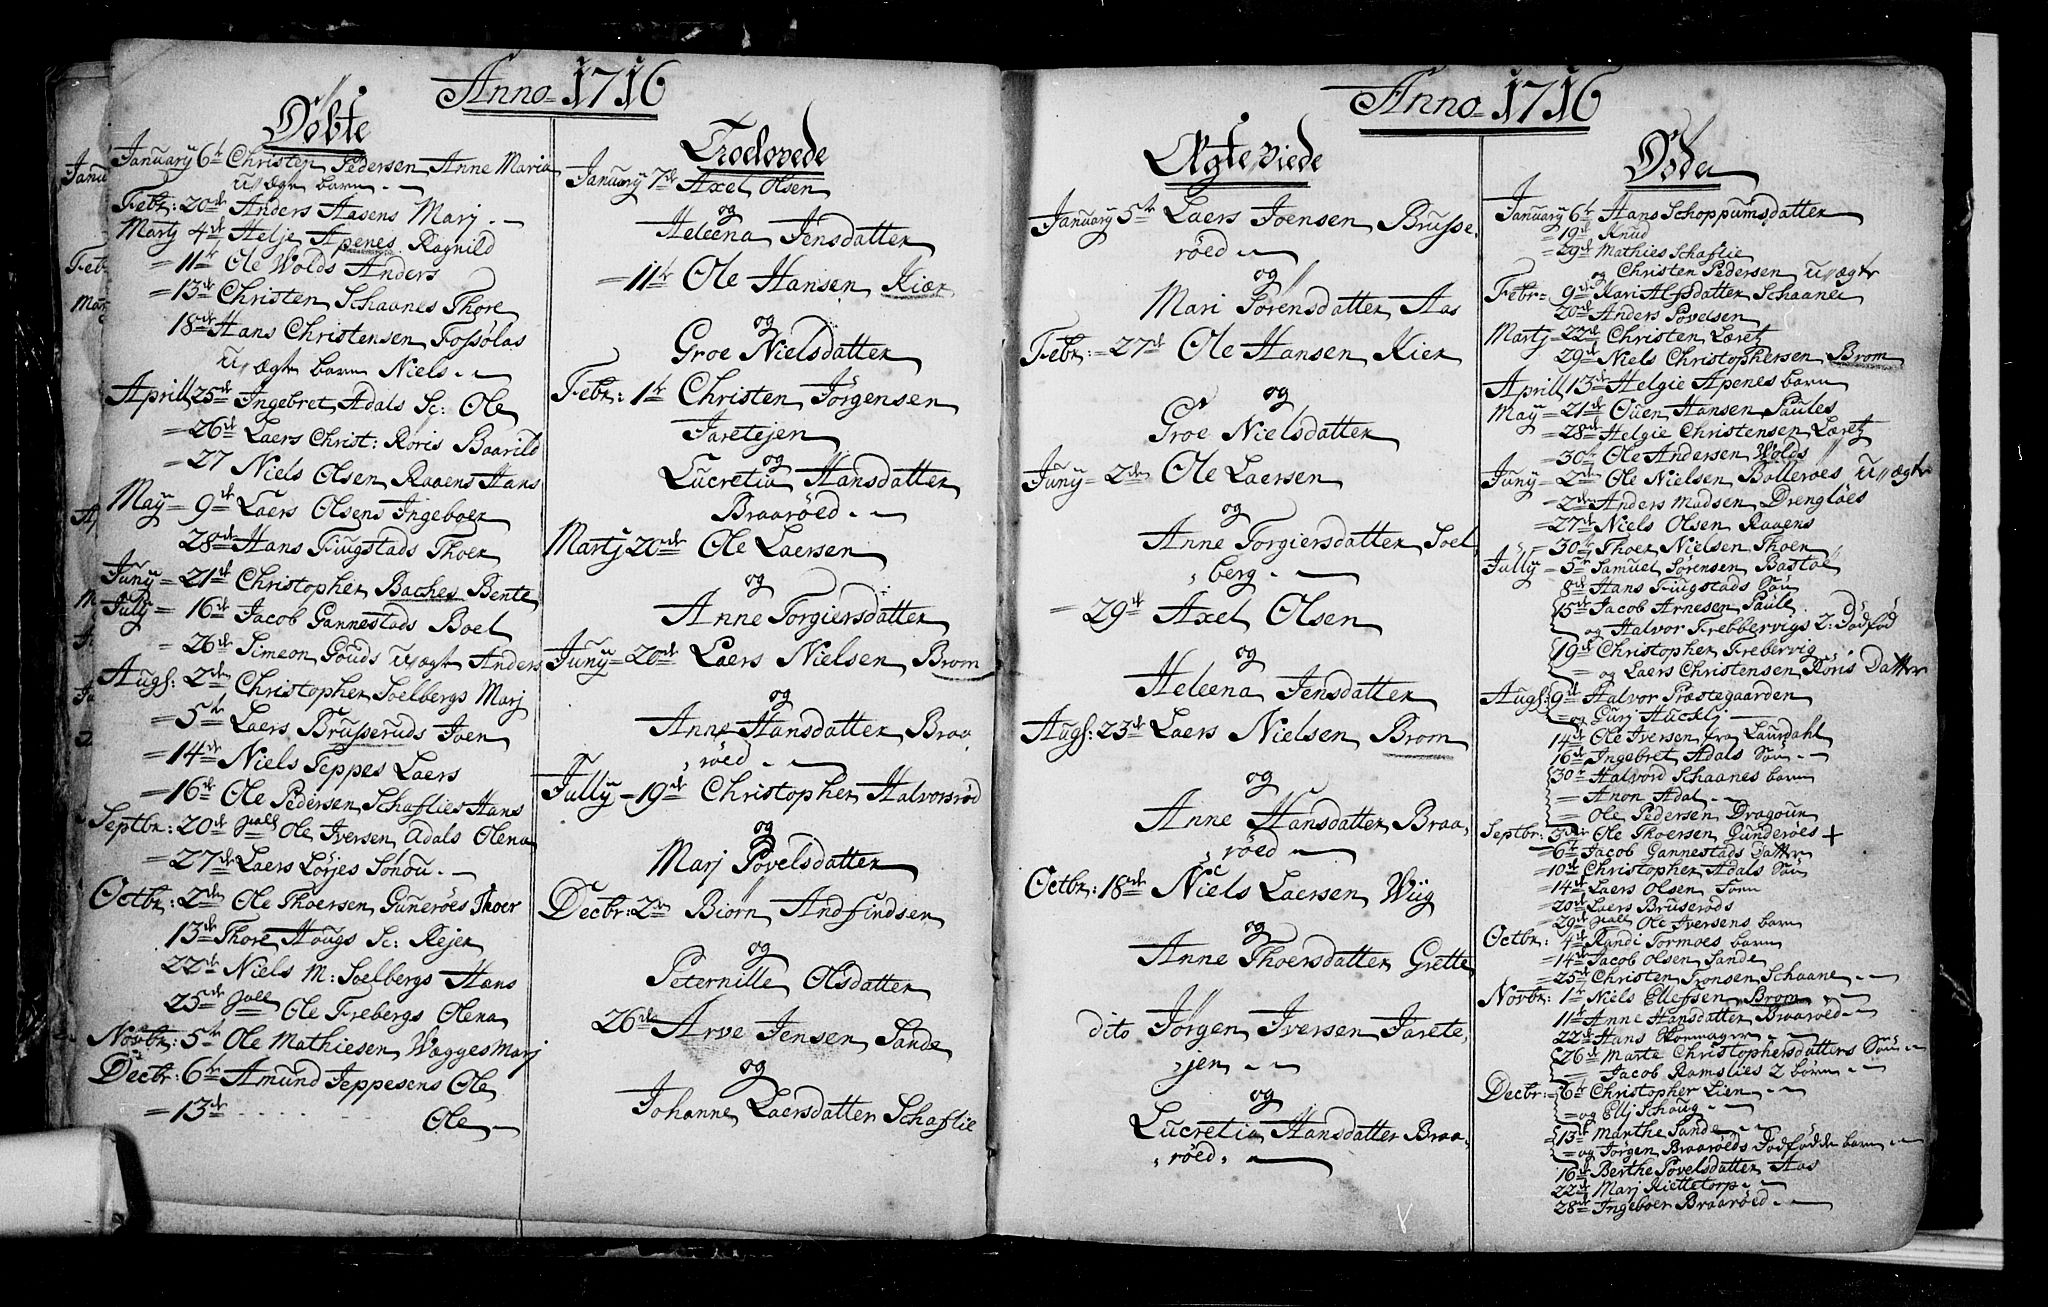 Anno 1716
Döbte
January 6te Christen Pedersen Anne Maria
u-ægte barn
Febr: 20de Anders Aasens Marj
Martj 4de Helje Apenes Ragnild
= 11te Ole Wolds Anders
= 13de Christen Schaanes Thore
18de Hans Christensen Fossölas
u-ægte barn Niels
Aprill 25de Ingebret Adals Sc: Ole
= 26de Laers Christ: Roris Baarild
= 27 Niels Olsen Raaens Hans
May = 9de Laers Olsens Ingeboer
28de Hans Fuugstads Thoer
Juny = 21de Christopher Baches Bente
Jully = 16de Jacob Gannestads Boel
= 26de Simeon Gouds u-ægte Anders
Augs: 2den Christopher Soelbergs Marj
= 5te Laers Brusseruds Joen
= 14de Niels Jeppes Laers
= 16de Ole Pedersen Schaflies Hans
Septbr: 20de Ole Iversen Adals Olena
= 27de Laers Lörjes Sönöu
Octbr: 2den Ole Thoersen Guneröes Thoer
13de Thore Hougs Sc: Rejer
22de Niels M: Soelbergs Hans
25de Ole Frebergs Olena
Novbr: 5te Ole Mathiesen Wagges Marj
Decbr: 6te Amund Jeppesens Ole
= 13de Ole
Troelovede
January 7de Axel Olsen
og
Heleena Jensdatter
= 11te Ole Hansen Kier
og
Groe Nielsdatter
Febr: 1te Christen Jörgensen
Jaretejen
og
Lucretia Hansdatter
Braaröed
Martj 20de Ole Laersen
og
Anne Torgiersdatter
Juny = 20de Laers Nielsen Brom
og
Anne Hansdatter Braa
röed
Jully = 19de Christopher Halvorsröd
og
Marj Povelsdatter
Decbr: 2den Biörn Andfindsen
og
Peternille Olsdatter
26de Arve Jensen Sande
og
Johanne Laersdatter Schaflie
Anno 1716
Ægteviede
January 5te Laers Joensen Brusse
röed
og
Mari Sörensdatter Aas
Febr: = 27de Ole Hansen Kier
og
Groe Nielsdatter
Juny = 2den Ole Laersen
og
Anne Torgiersdatter Soel
berg
= 29de Axel Olsen
og
Heleena Jensdatter
Augs: 23de Laers Nielsen Brom
og
Anne Hansdatter Braa
röed
Octbr: 18de Niels Laersen Wiig
og
Anne Thoersdatter Grette
dito Jörgen Iversen Jarete
jen
og
Lucretia Hansdatter Braa
röed
Döde
January 6te Hans Schoppumsdatter
= 19de Knud
= 29de Mathies Schaflie
og Christen Pedersen u-ægte
Febr = 9de Kari Alfsdatter Schaane
20de Anders Povelsen
Martj = 22de Christen Læretz
29de Niels Christophersen Brom
Aprill 13de Helgie Apenes barn
May = 21de Ouen Hansen Paules
= 28de Helgie Christensen Læretz
= 30te Ole Andersen Wolds
Juny = 2den Ole Nielsen Bolleröes u-ægte
= 2den Anders Madsen Drenglöes
= 27de Niels Olsen Raaens
= 30te Thoer Nielsen Thoer
Jully = 5te Samuel Sörensen Bastöe
8de Hans Fuugstads Sön
15de Jacob Arnesen Paule
og Halvor Frebbervigs 2: Dödfød
19de Christopher Frebervig
= og Laers Christensen Röris Datter
Augs: 9de Halvor Præstegaarden
= og Gurj Hucklj
14de Ole Iversen fra Laurdahl
16de Ingebret Adals Sön
30te Halvord Schaanes barn
= Anon Adal
= Ole Pedersen Dragoun
Septbr: 3die Ole Thoersen Gunderöes +
= 6te Jacob Gannestads Datter
= 10de Christopher Adals Sön
= 14de Laers Olsen Torn
= 20de Laers Bruseröds
= 29de Ole Iversens barn
Octbr: 4de Randi Tormoes barn
= 14de Jacob Olsen Sande
= 25de Christen Tronsen Schaane
Novbr: 1te Niels Ellefsen Brom
11te Anne Hansdatter Braaröed
22de Hans Kormager
26de Marte Christophersdatters Sön
= Jacob Ramslies 2 börn
Decbr: 6te Christopher Lien
= og Ellj Schoug
13de Marthe Sande
= og Jörgen Braaröeds Dödfödde barn
16de Berthe Povelsdatter Aas
22de Marj Kiettetorp
28de Ingeboer Braaröed